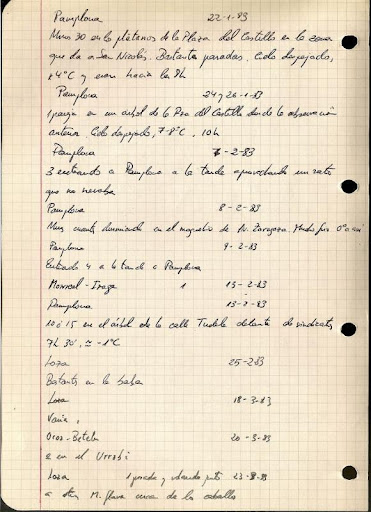 Pamplona 22-1-83
Unos 30 en los plátanos de la Plaza del Castillo en la zona
que da a San Nicolás. Bastante parados, Cielo despejado,
4°C y eran hacia las 8h
Pamplona 24 y 26-1-83
1 pareja en un árbol de la Pza del Castillo donde la observación
anterior. Cielo despejado, 7-8°C, 10h
Pamplona 7-2-83
3 entrando a Pamplona a la tarde aprovechando un rato
que no nevaba
Pamplona 8-2-83
Unos cuantos durmiendo en el magnolio de Av. Zaragoza. Mucho frío 0° o así
Pamplona 9-2-83
Entrado 4 a la tarde a Pamplona
Monreal - 1 15-2-83
Pamplona 15-2-83
10 ó 15 en el árbol de la calle Tudela delante de sindicatos
7h 30', ≃ -1°C
Loza 25-2-83
Bastantes en la balsa
Loza 18-3-83
Varias
Oroz-Betelu 20-3-83
2 en el Urrobi
Loza 1 posado y volando junto 23-83
a otra M. flava cerca de los caballos